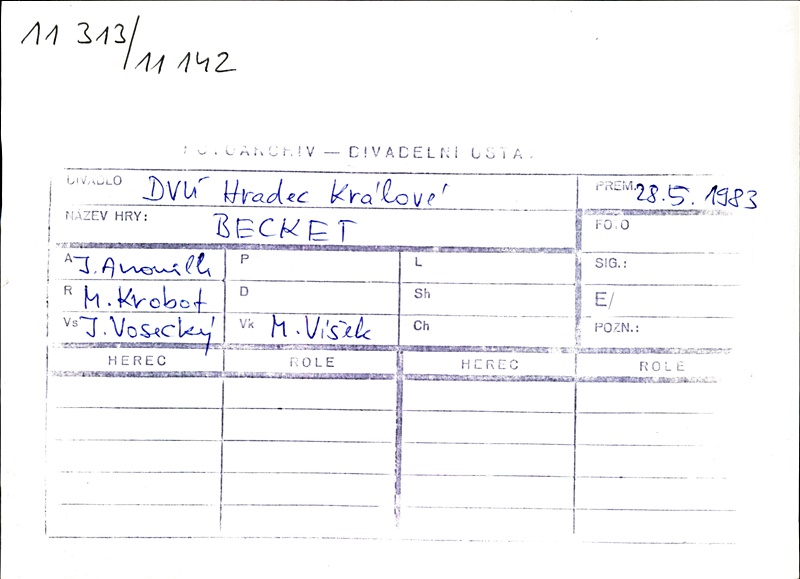 11 313/
11 142
FOTOARCHIV — DIVADELNÍ ÚSTAV
DIVADLO DVÚ Hradec Králové PREM. 28.5. 1983
NÁZEV HRY: BECKET FOTO
A J. Anouilh P L SIG.:
R M. Krobot D Sh E/
Vs J. Vosecký Vk M. Víšek Ch POZN.:
HEREC ROLE HEREC ROLE